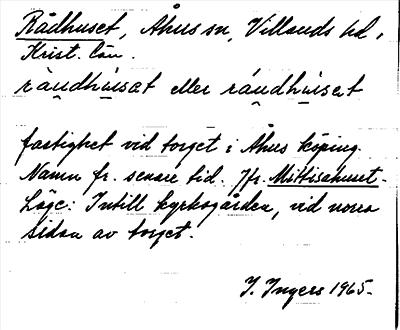 Rådhuset, Åhus sn, Villands hd,
Krist. län.
ràudhùisat eller ráudhùisat
fastighet vid torget i Åhus köping.
Namn fr. senare tid. Jfr. Mittisahuset.
Läge: Intill kyrkogården, vid norra
sidan av torget.
I. Ingers 1965.